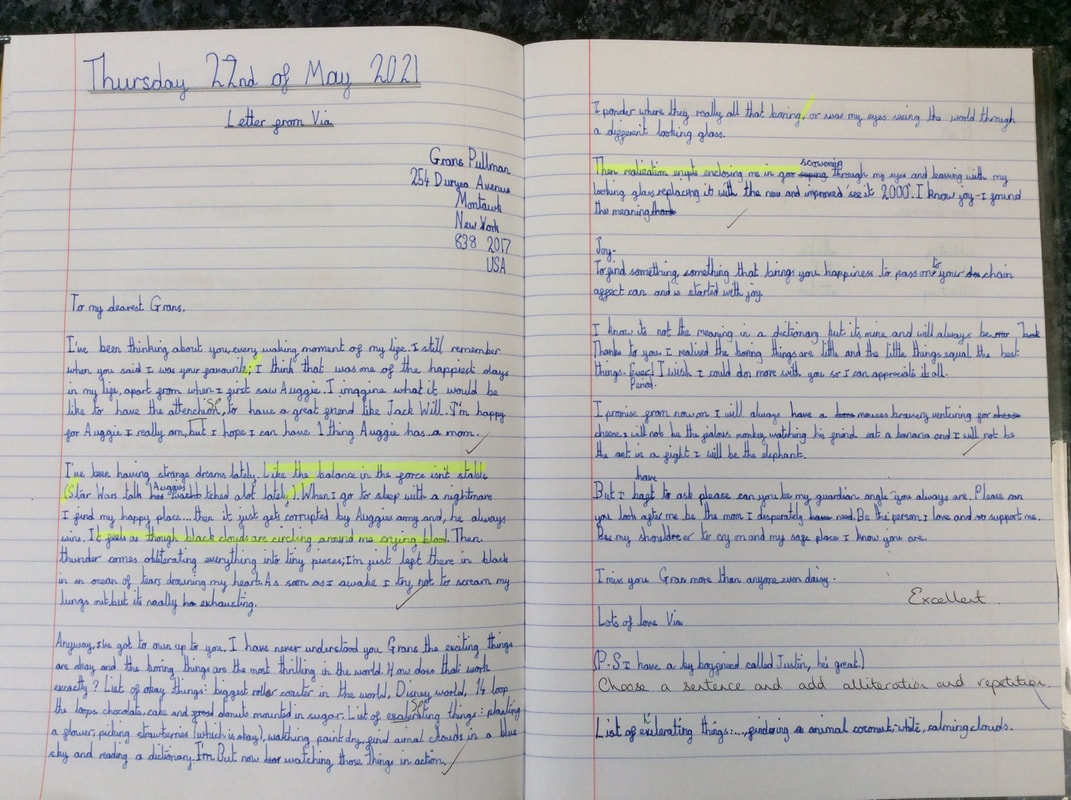 Thursday 22nd of May 2021
Letter from Via
Grans Pullman
254 Duryea Avenue
Montawk
New York
838 2017
USA
To my dearest Grans,
I've been thinking about you, every waking moment of my life. I still remember
when you said I was your favourite; I think that was one of the happiest days
in my life, apart from when I first saw Auggie. I imagine what it would be
like to have the attenchion, to have a great friend like Jack Will. I'm happy
for Auggie I really am, but I hope I can have 1 thing Auggie has...a mom.
I've been having strange dreams lately. Like the balance in the force isn't stable
(Star Wars talk Auggies tched alot lately). When I go to sleep with a nightmare
I find my happy place...then it just gets corrupted by Auggies army and, he always
wins. It feels as though black clouds are circling around me crying blood. Then
thunder comes obliterating everything into tiny pieces; I'm just left there in black
in an ocean of tears drowning my heart. As soon as I awake I try not to scream my
lungs out but its really exhausting.
Anyway, I've got to own up to you. I have never understood you Grans the exciting things
are okay and the boring things are the most thrilling in the world. How does that work
excactly? List of okay things: biggest roller coaster in the world, Disney world, 14 loop
the loops chocolate, cake and donuts mounted in sugar. List of things: planting
a flower, picking strawberries (which is okay), watching paint dry, find aimal clouds in a blue
sky and reading a dictionary. I'm. But now watching those things in action.
I ponder where they really all that boring, or was my eyes seeing the world through
a different looking glass.
Then realisation erupts enclosing me in scowering through my eyes and leaving with my
looking glass replacing it with the new and improved 'see it 2000'. I know joy-I found
the meaning
Joy-
To find something, something that brings you happiness to pass on to your chain
affect can and is started with joy
I know its not the meaning in a dictionary but its mine and will always be
Thanks to you I realised the boring things are little and the little things equal the best
things. Ever! I wish I could do more with you so I can appreciate it all.
Period.
I promise from now on I will always have a mouses bravery venturing for
cheese, I will not be the jealous monkey watching his friend eat a banana and I will not be
the ant in a fight I will be the elephant.
But I have to ask please can you be my guardian angle-you always are. Please can
you look after me be the mom I desperately need. Be the person I love and support me.
Be my shouldreer to cry on and my safe place I know you are.
I miss you Gran more than anyone even daisy.
Excellent
Lots of love Via
(P.S I have a boyfriend called Justin, he's great.)
Choose a sentence and add alliteration and repetition.
List of exilerating things:..., finding animal coconut, white, calming clouds.